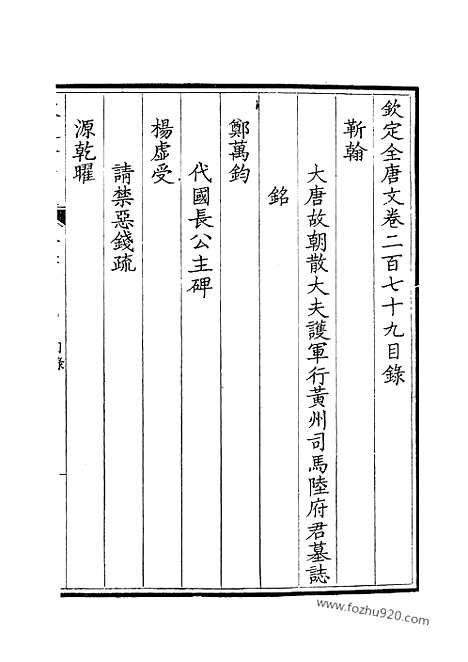 欽定全唐文卷二百七十九目錄
靳翰
大唐故朝散大夫護軍行黃州司馬陸府君墓誌
銘
鄭萬鈞
代國長公主碑
楊虛受
請禁惡錢疏
源乾曜
www.fozhu920.com